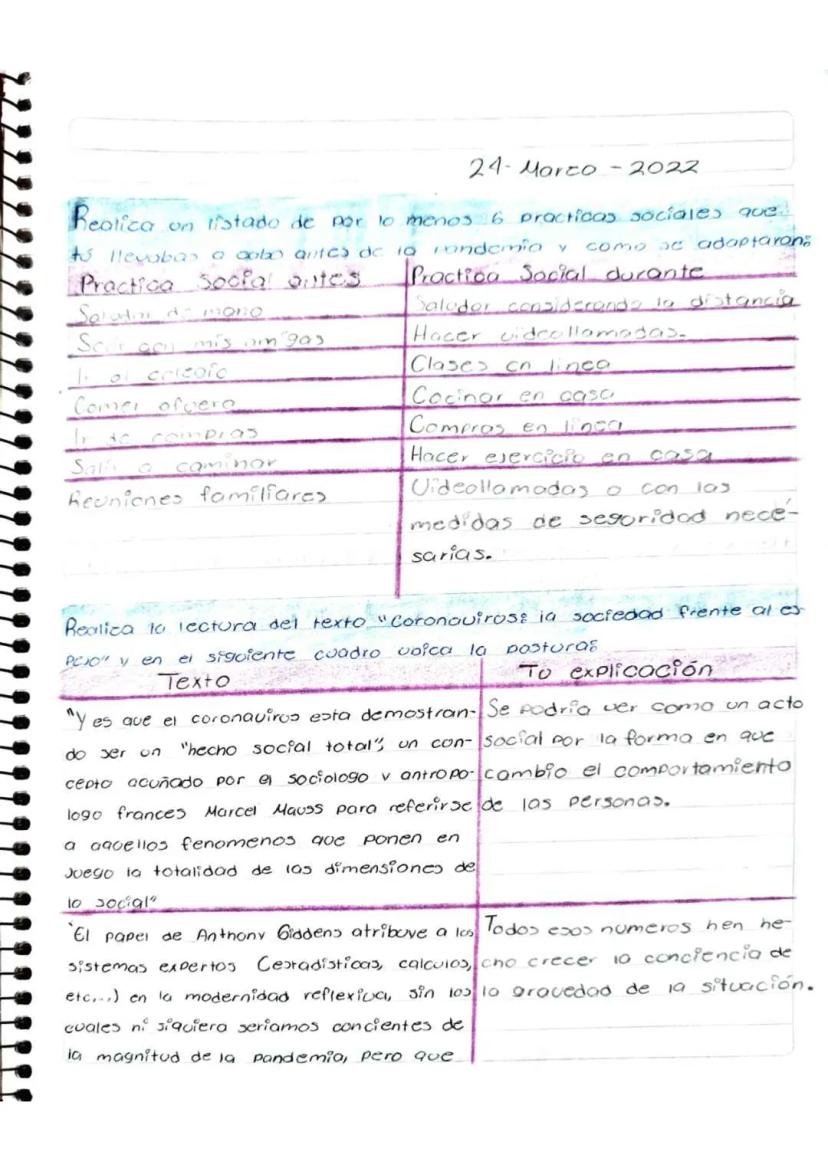 24-Marzo-2022
Realiza un listado de por lo menos 6 practicas sociales que
tú llevabas a cabo antes de la pandemia y como se adaptaron:
Practica Social antes Practica Social durante
Saludar de mano Saludar considerando la distancia
Salir con mis amigas Hacer videollamadas.
Ir al colegio Clases en linea
Comer afuera Cocinar en casa
Ir de compras Compras en linea
Salir a caminar Hacer ejercicio en casa
Reuniones familiares Videollamadas o con las
medidas de seguridad nece-
sarias.
Realiza la lectura del texto "Coronavirus: la sociedad frente al es
pejo" y en el siguiente cuadro ubica la postura:
Texto Tu explicación
"Y es que el coronavirus esta demostran- Se podria ver como un acto
do ser un "hecho social total", un con- social por la forma en que
cepto acuñado por el sociologo y antropo- cambio el comportamiento
logo frances Marcel Mauss para referirse de las personas.
a aquellos fenomenos que ponen en
juego la totalidad de las dimensiones de
lo social"
"El papel de Anthony Giddens atribuye a los Todos esos numeros hen he-
sistemas expertos (estadisticas, calculos, cho crecer la conciencia de
etc...) en la modernidad reflexiva, sin los la gravedad de la situación.
cuales ni siquiera seriamos concientes de
la magnitud de la pandemia, pero que